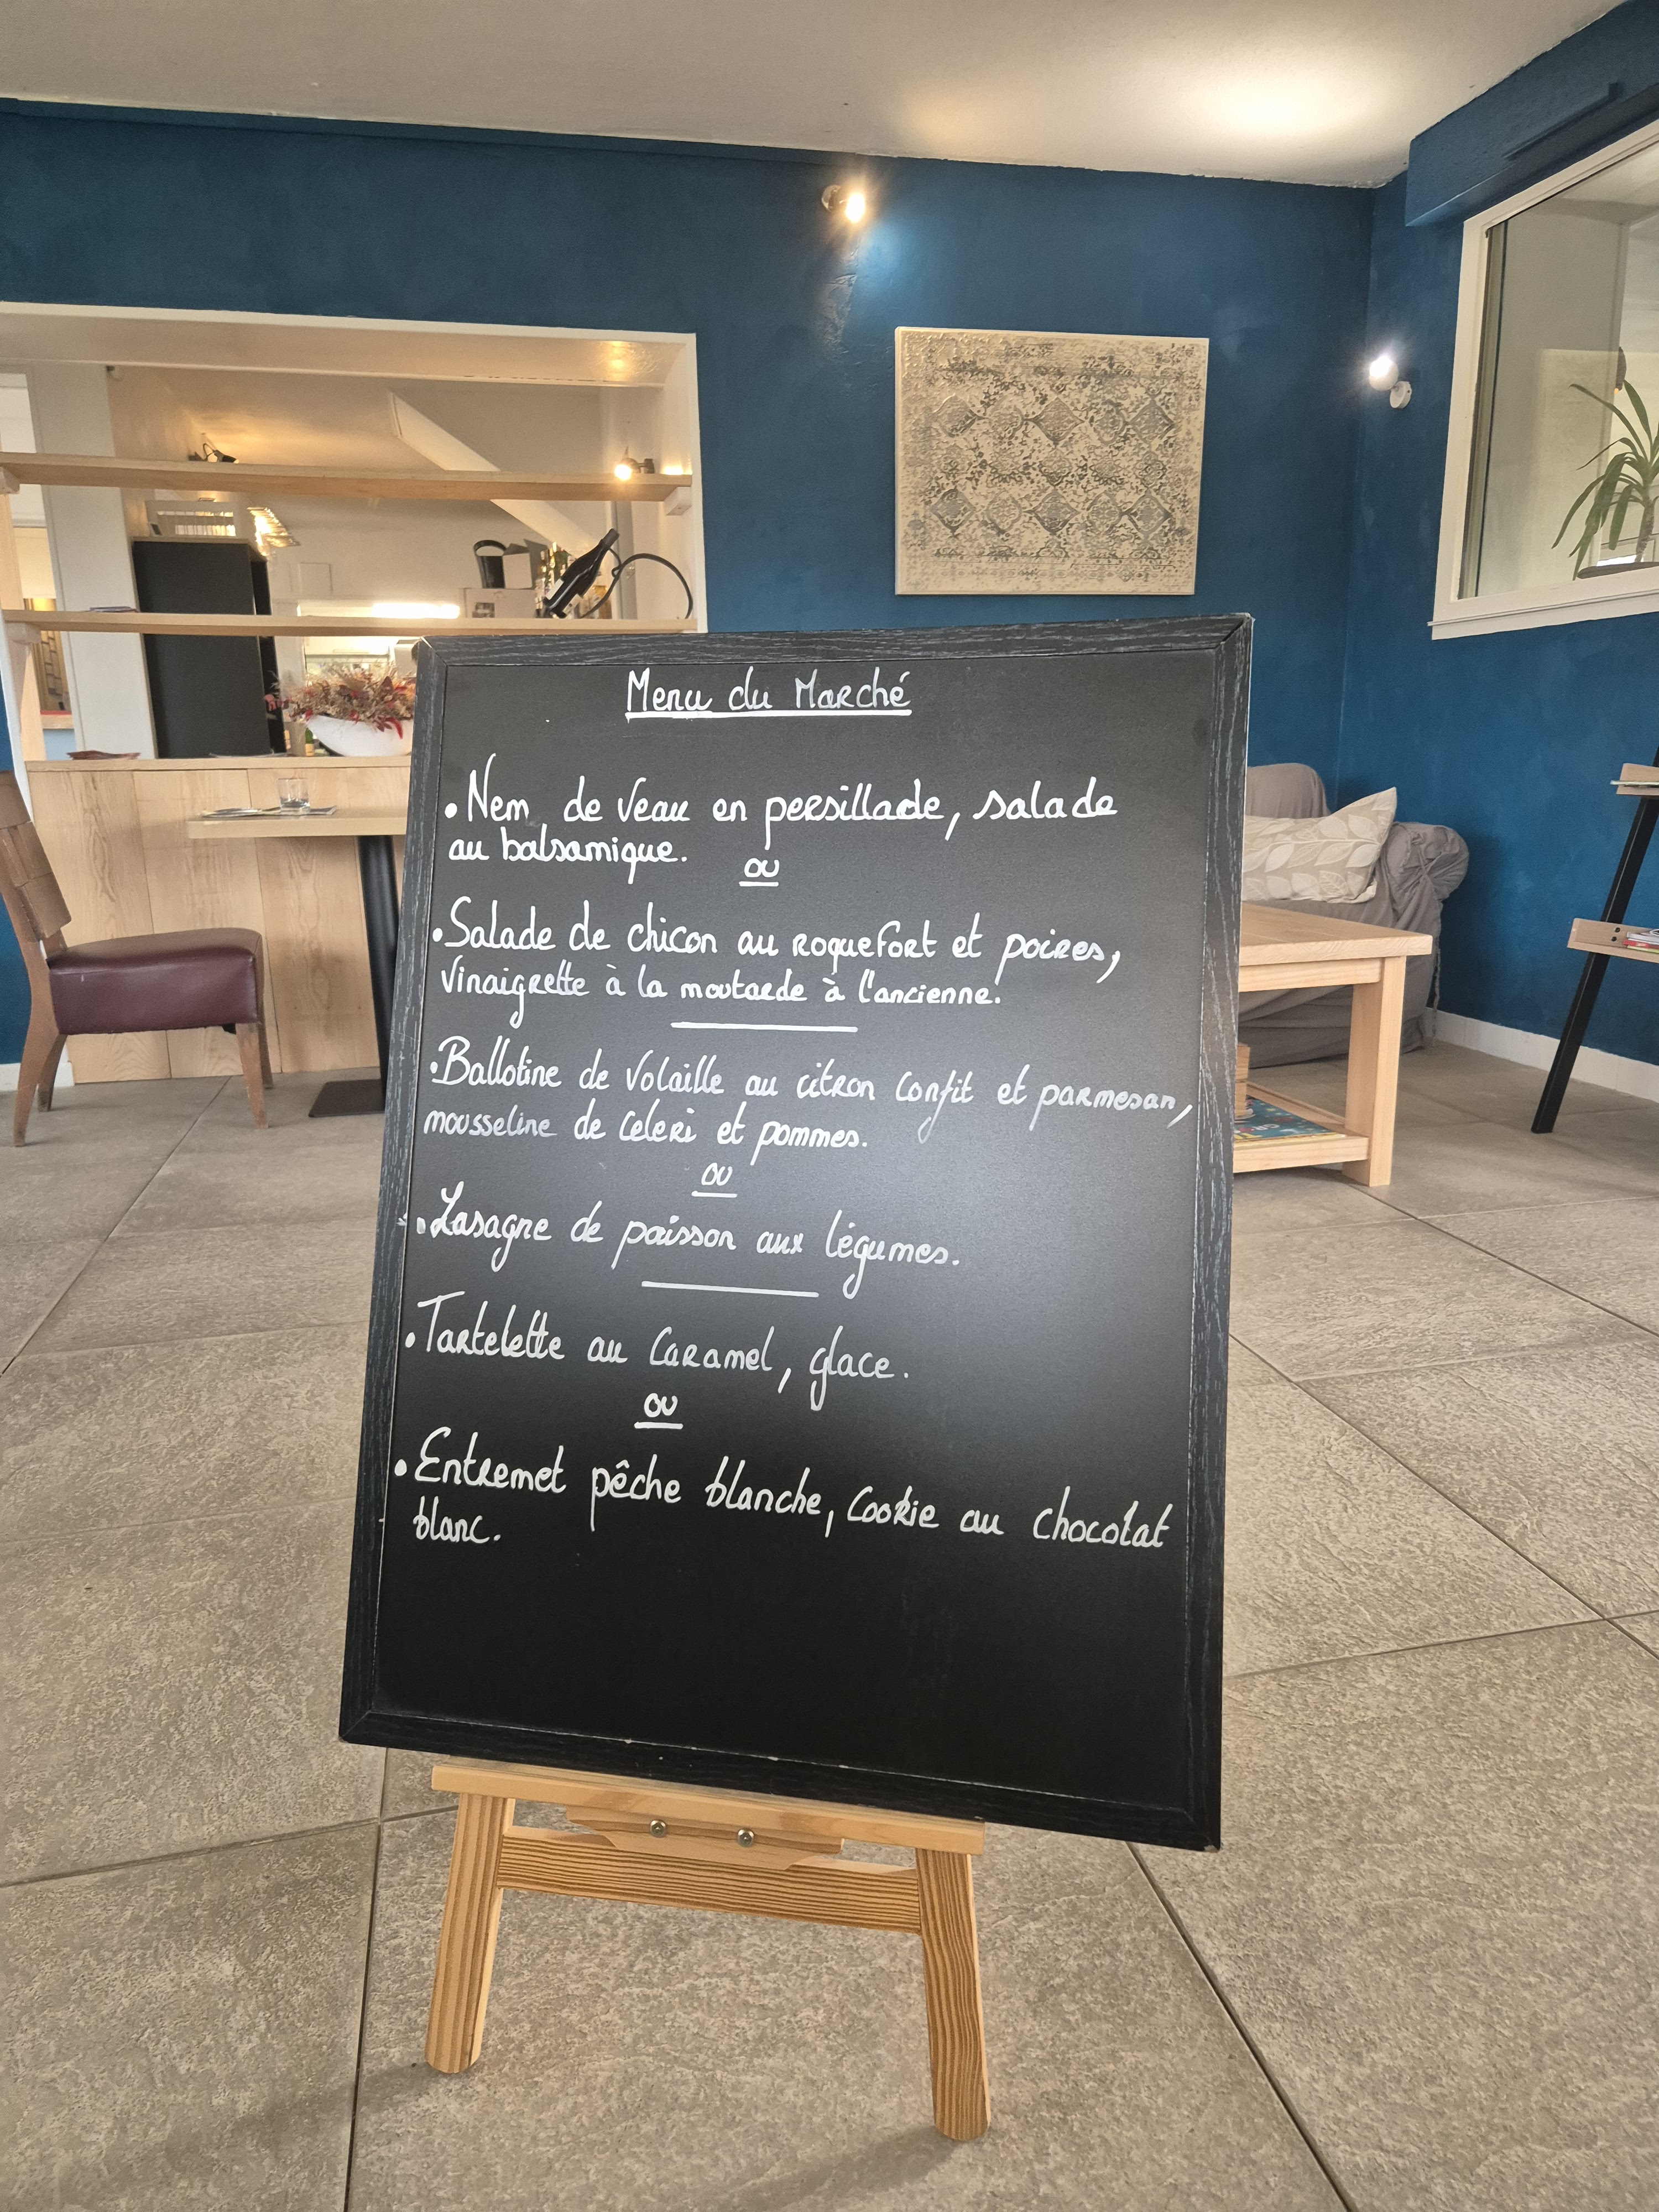 Menu du Marché
• Nem de veau en persillade, salade
au balsamique.
ou
• Salade de chicon au roquefort et poires,
vinaigrette à la moutarde à l'ancienne.
• Ballotine de volaille au citron confit et parmesan,
mousseline de celeri et pommes.
ou
• Lasagne de poisson aux légumes.
• Tartelette au caramel, glace.
ou
• Entremet pêche blanche, cookie au chocolat
blanc.